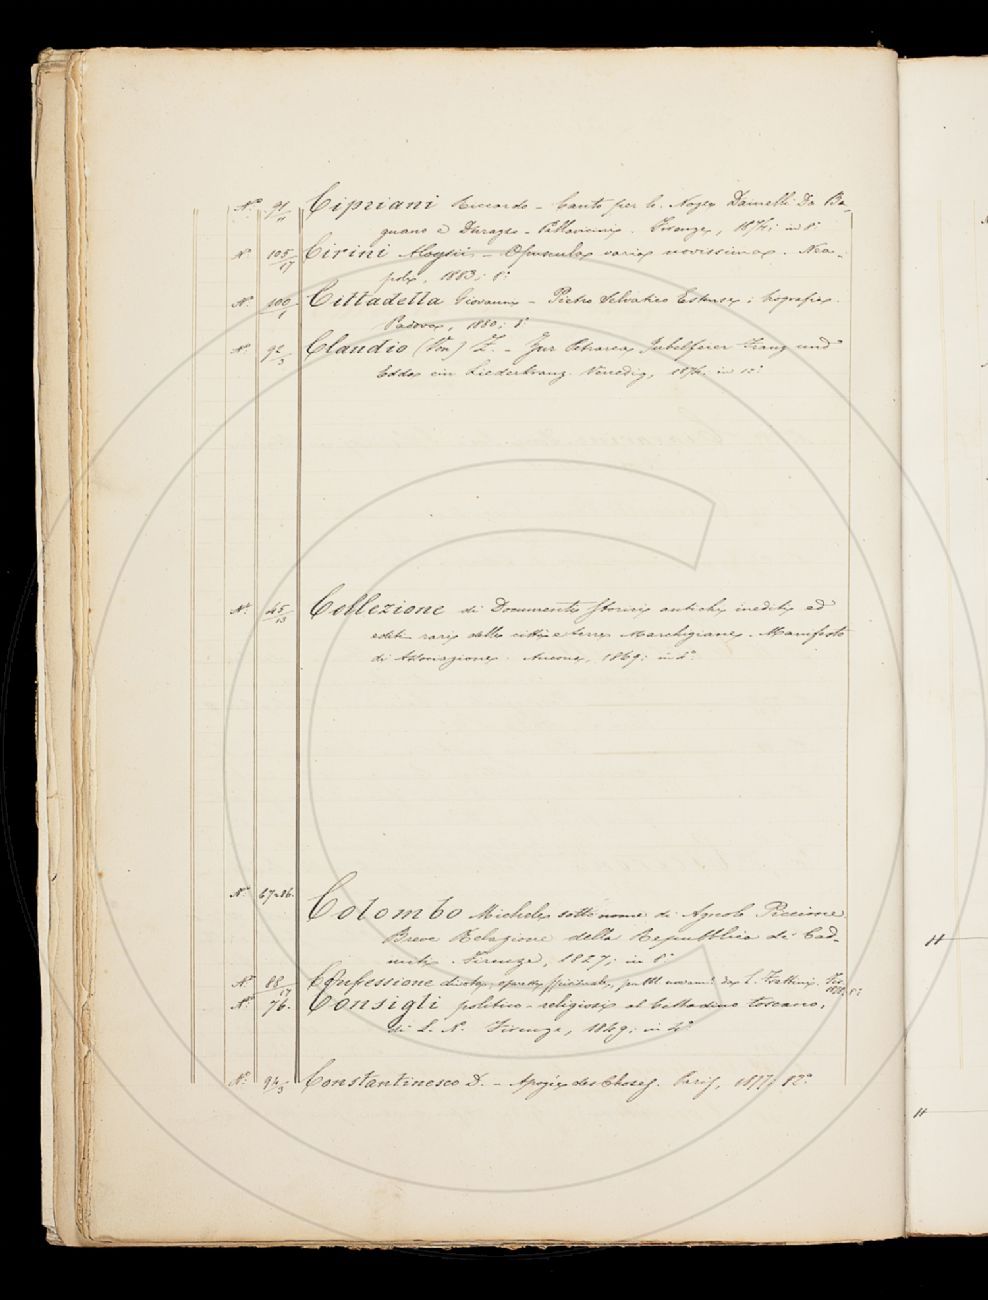 N.º 91/11 Cipriani Riccardo – Canto per le Nozze Dainelli Da Ba-
gnano e Durazzo – Pallavicini. Firenze, 1874; in 8º
N. 105/17 Cirini Aloysii – Opuscula varia novissima. Nea-
poli, 1883; 8º
N. 100/1 Cittadella Giovanni – Pietro Selvatico Estense; biografia.
Padova, 1880; 8º
N. 92/3 Claudio (Von) Z. – Zur Petrarca Jubelfeier Franz und
Edda ein Liederkranz. Venedig, 1874, in 12º
N. 45/13 Collezione di Documenti storici antichi inediti ed
editi rari delle città e terre Marchigiane. Manifesto
di Associazione. Ancona, 1869; in 4º
N. 67.86. Colombo Michele sotto nome di Agnolo Piccione
Breve Relazione della Repubblica de' Cad-
miti. Firenze, 1827; in 8º
N. 88/17 Confessione
N. 76. Consigli politico – religiosi al Contadino toscano,
di L. N. Firenze, 1849; in 4º
N. 94/3 Constantinesco D. – Apogée des Choses. Paris, 1877; 12º